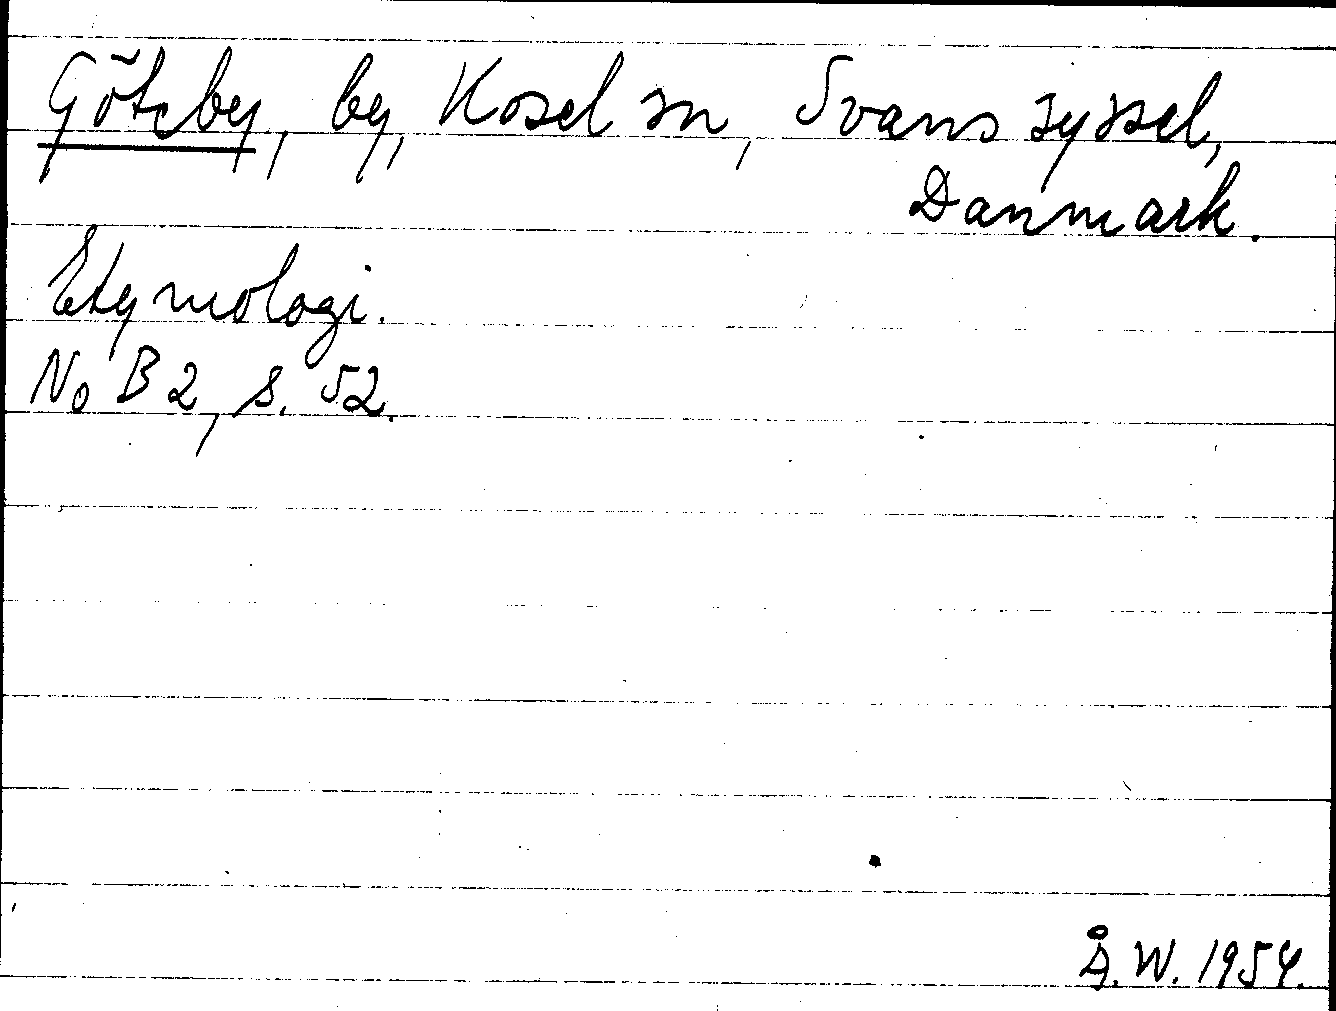 Göteby, by, Kosel sn, Svans syssel,
Danmark.
Etymologi.
NoB 2, s. 52.
Å.W. 1954.